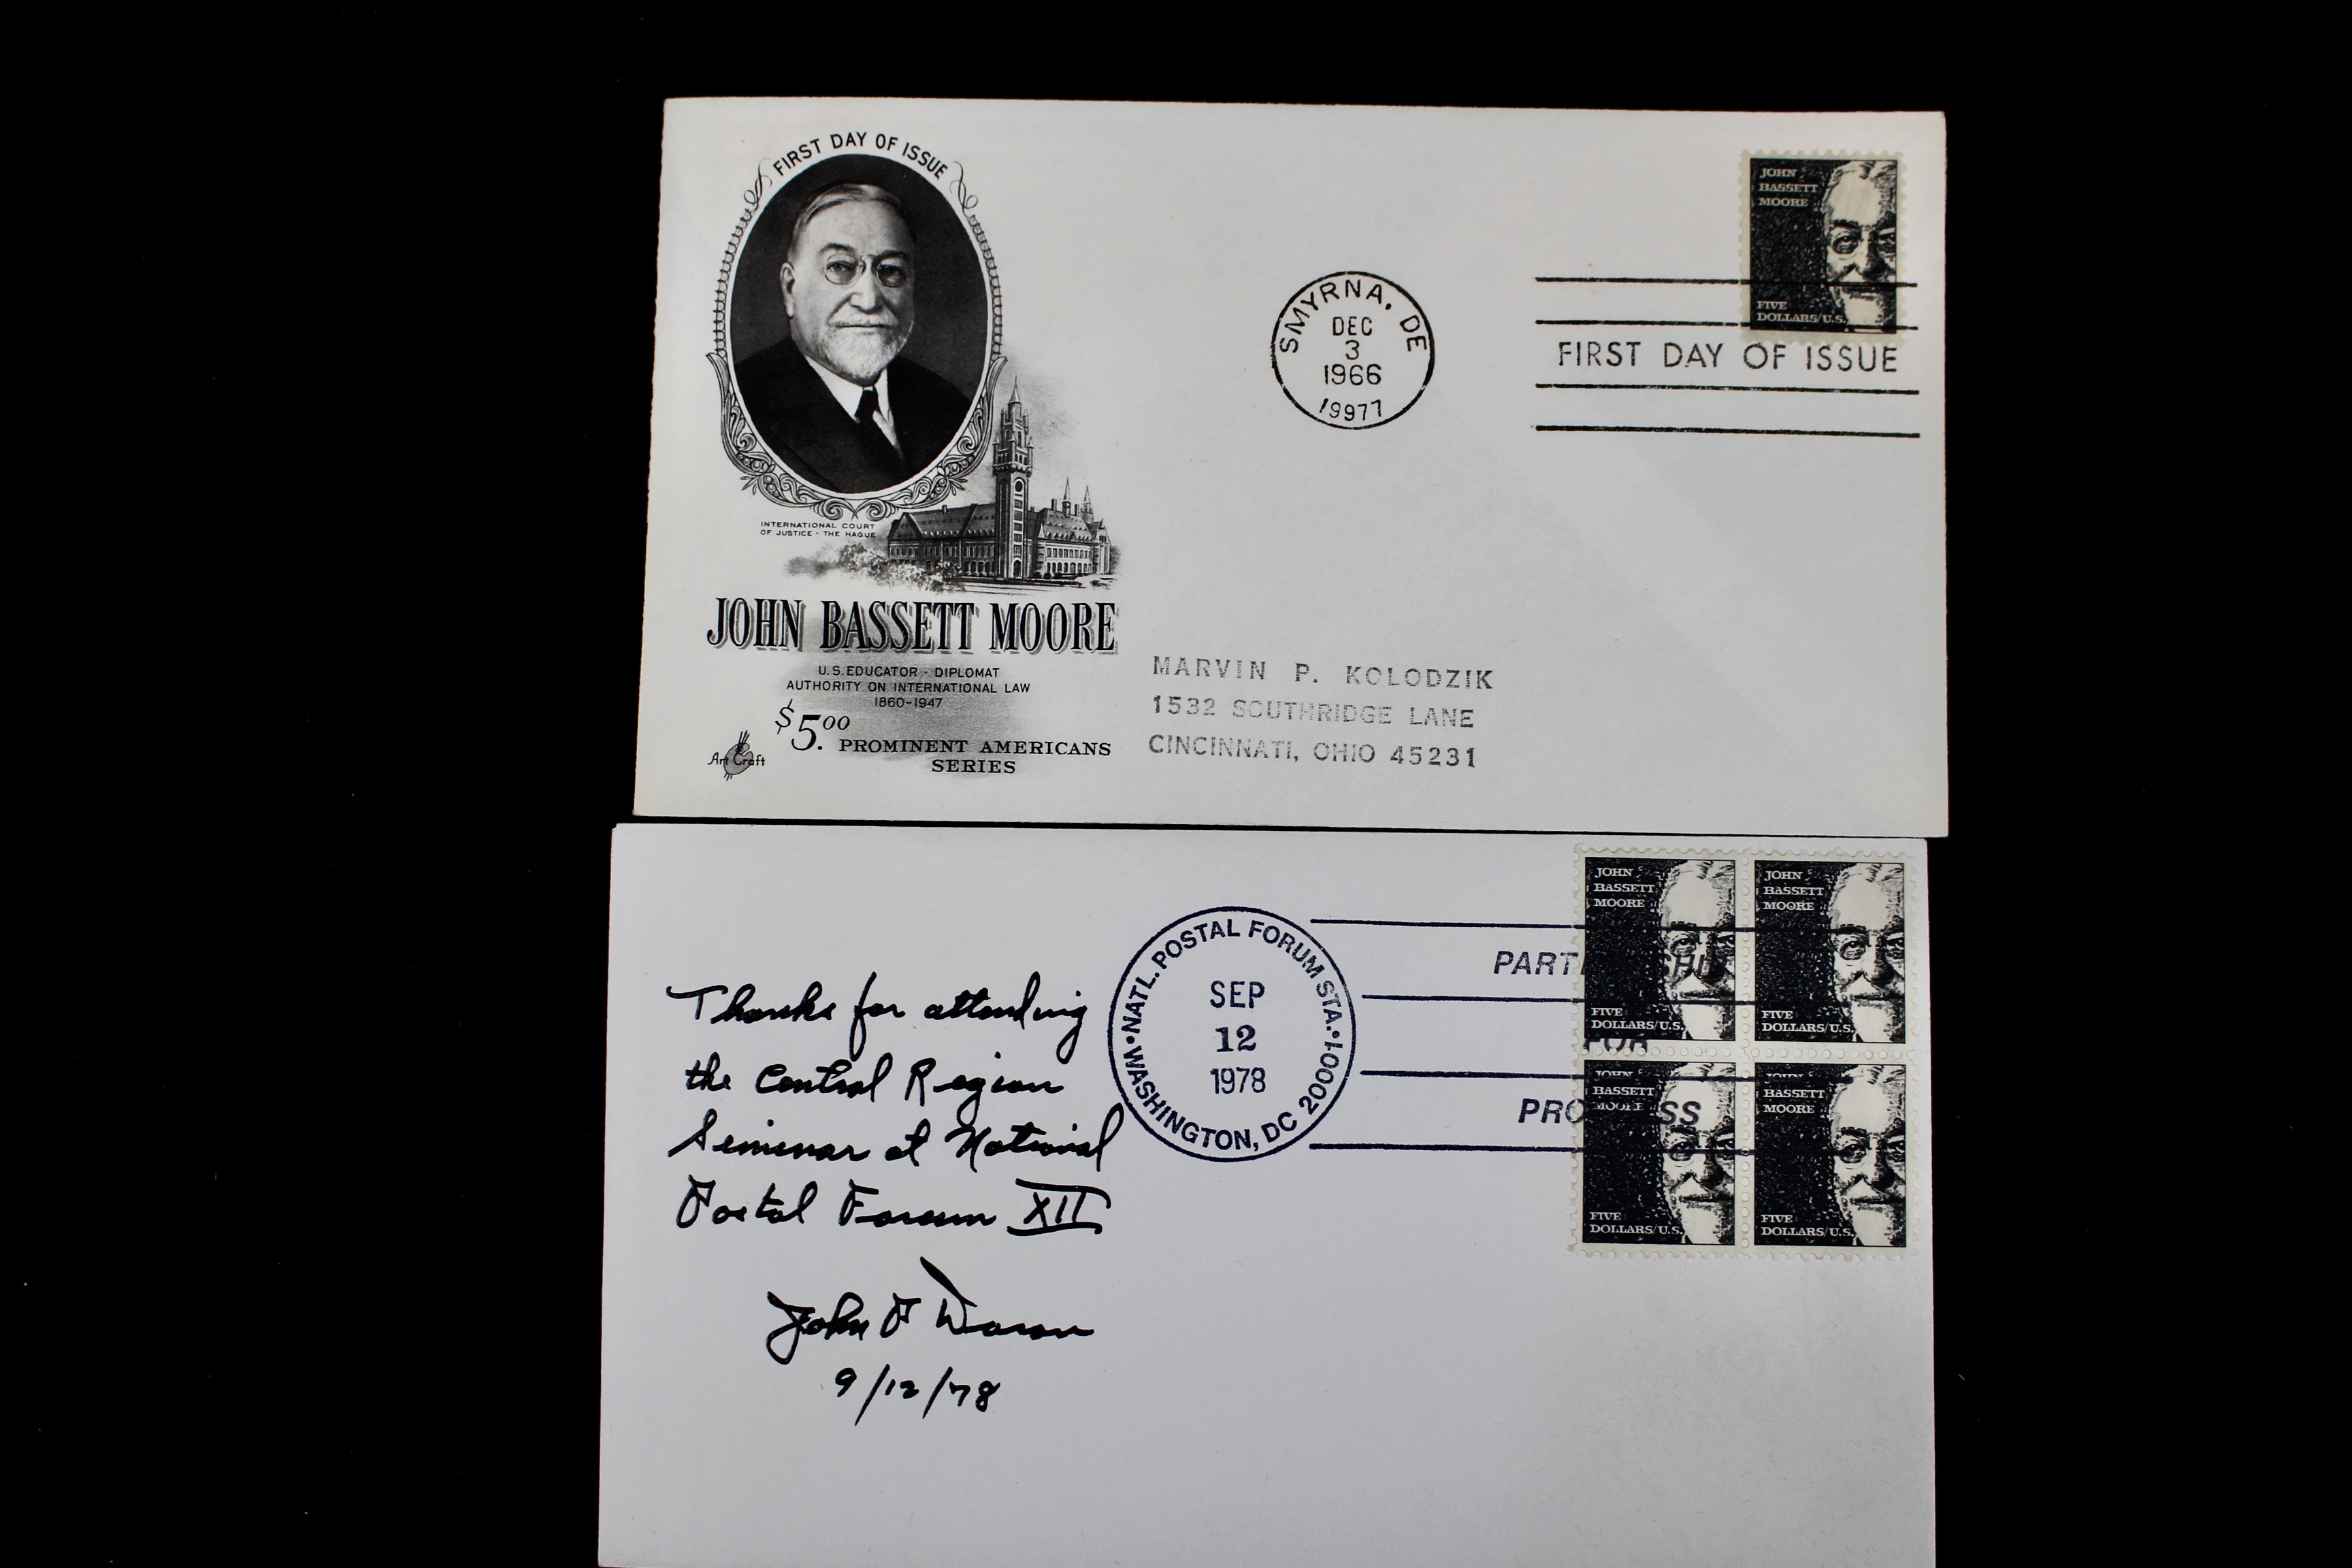 FIRST DAY OF ISSUE
INTERNATIONAL COURT
OF JUSTICE - THE HAGUE
JOHN BASSETT MOORE
U.S. EDUCATOR - DIPLOMAT
AUTHORITY ON INTERNATIONAL LAW
1860-1947
$5.00 PROMINENT AMERICANS
SERIES
Art Craft
SMYRNA, DE
DEC
3
1966
19977
JOHN
BASSETT
MOORE
FIVE
DOLLARS/U.S.
FIRST DAY OF ISSUE
MARVIN P. KOLODZIK
1532 SOUTHRIDGE LANE
CINCINNATI, OHIO 45231
Thanks for attending
the Central Region
Seminar at National
Postal Forum XII
John F
9/12/78
NATL. POSTAL FORUM STA.
SEP
12
1978
WASHINGTON, DC 20001
PARTNERSHIP
FOR
PROGRESS
JOHN
BASSETT
MOORE
FIVE
DOLLARS/U.S.
JOHN
BASSETT
MOORE
FIVE
DOLLARS/U.S.
JOHN
BASSETT
MOORE
FIVE
DOLLARS/U.S.
JOHN
BASSETT
MOORE
FIVE
DOLLARS/U.S.